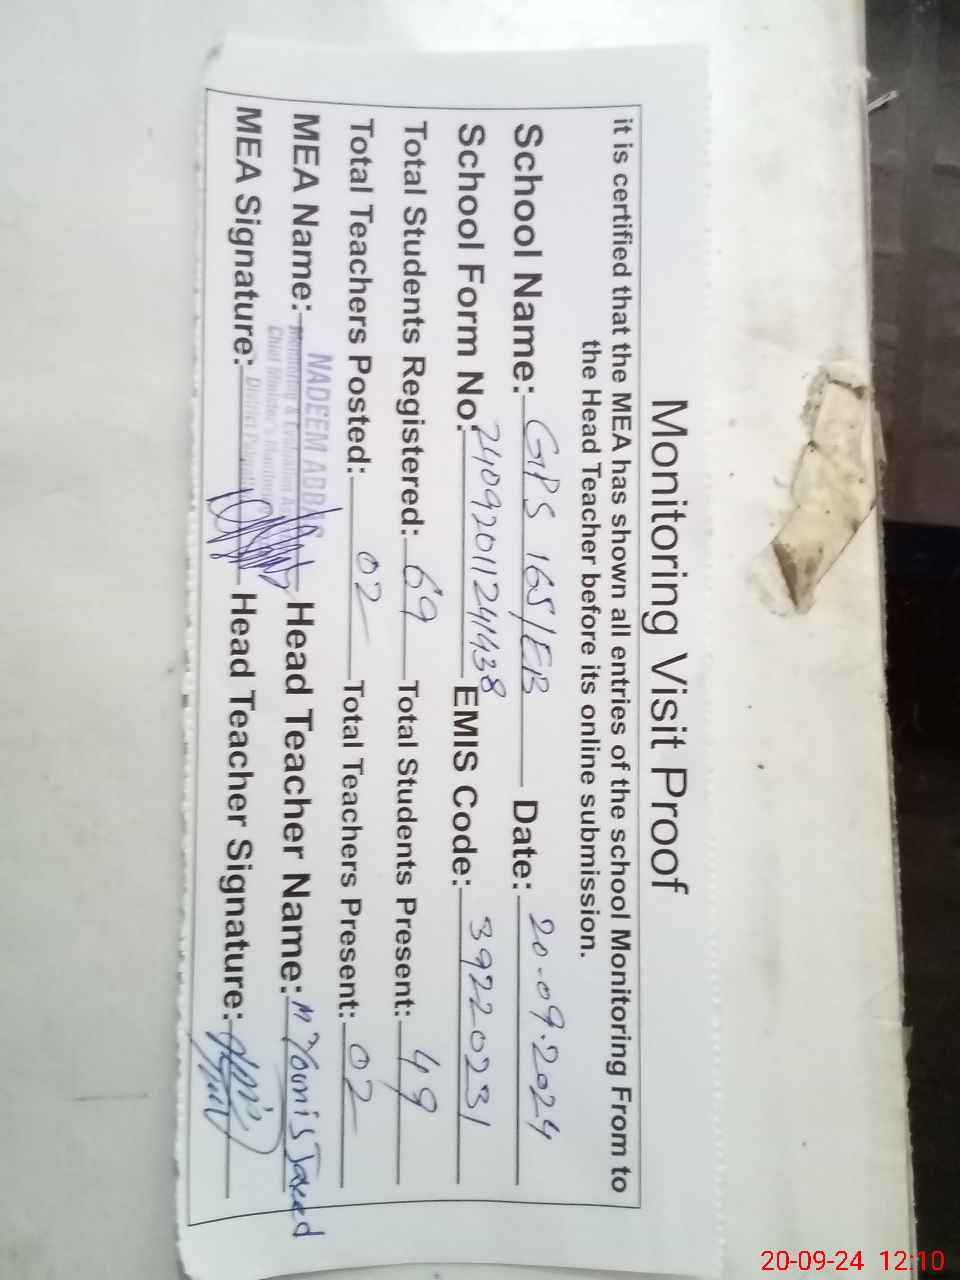 Monitoring Visit Proof
it is certified that the MEA has shown all entries of the school Monitoring From to
the Head Teacher before its online submission.
School Name: GPS 165/EB Date: 20-09-2024
School Form No: EMIS Code: 39220231
Total Students Registered: 69 Total Students Present: 49
Total Teachers Posted: 02 Total Teachers Present: 02
MEA Name: NADEEM Head Teacher Name: M Younis Javed
Monitoring & Evaluation
Chief Minister's
District
MEA Signature: Head Teacher Signature:
20-09-24 12:10